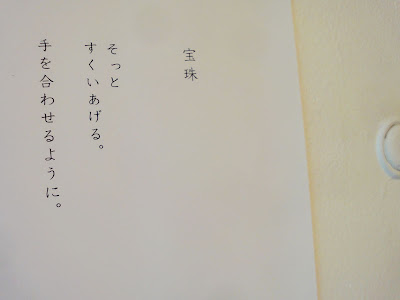 宝珠
そっと
すくいあげる。
手を合わせるように。